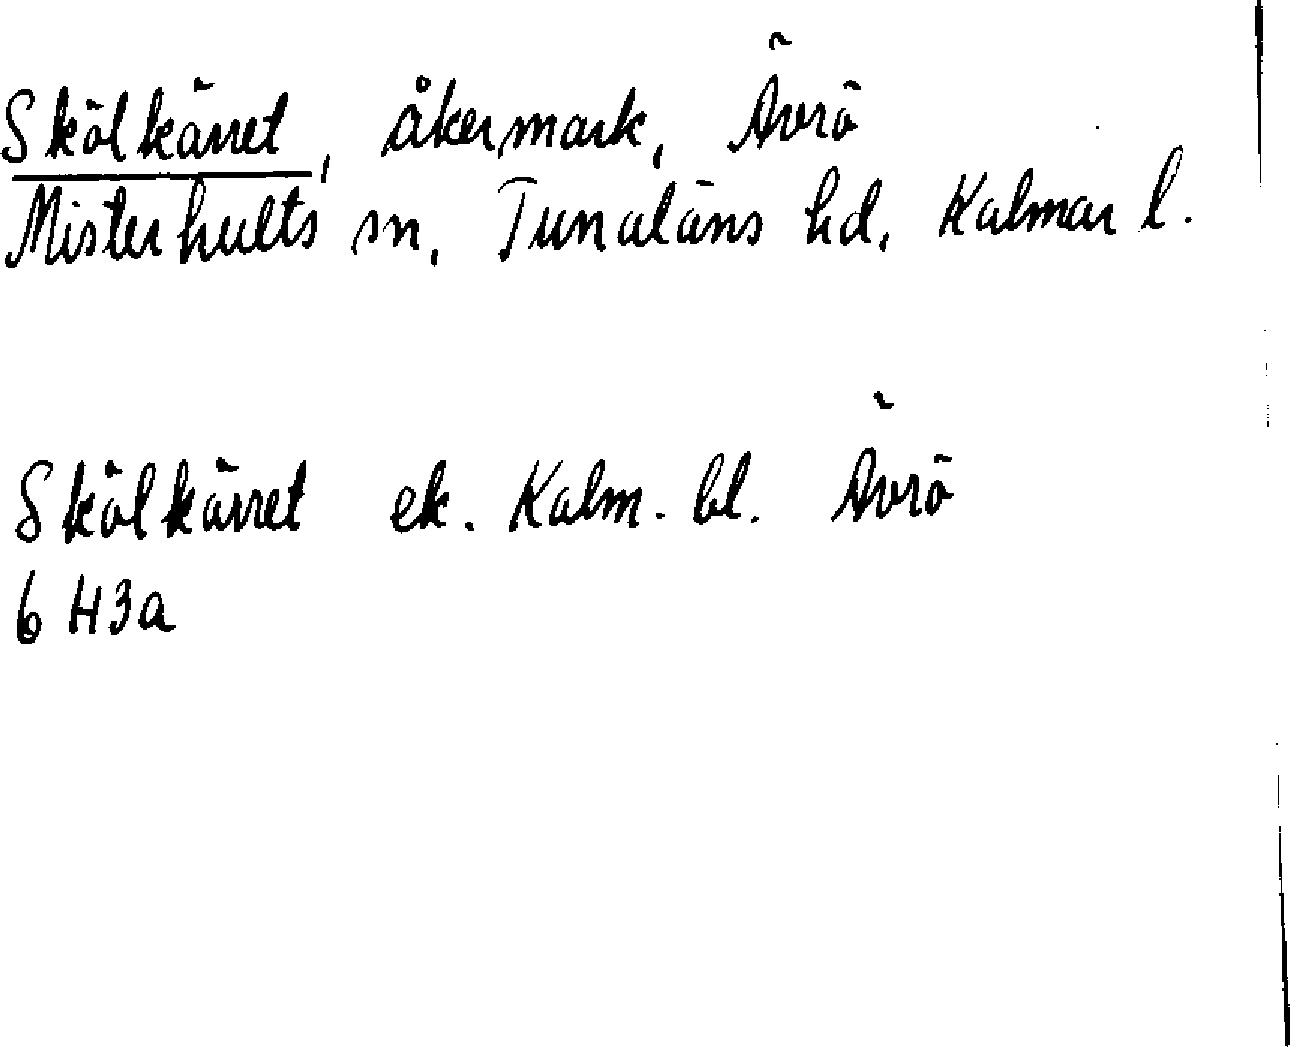 Skölkärret, åkermark, Ävrö
Misterhults sn, Tunaläns hd, Kalmar l.
Skölkärret ek. Kalm. bl. Ävrö
6 H3a